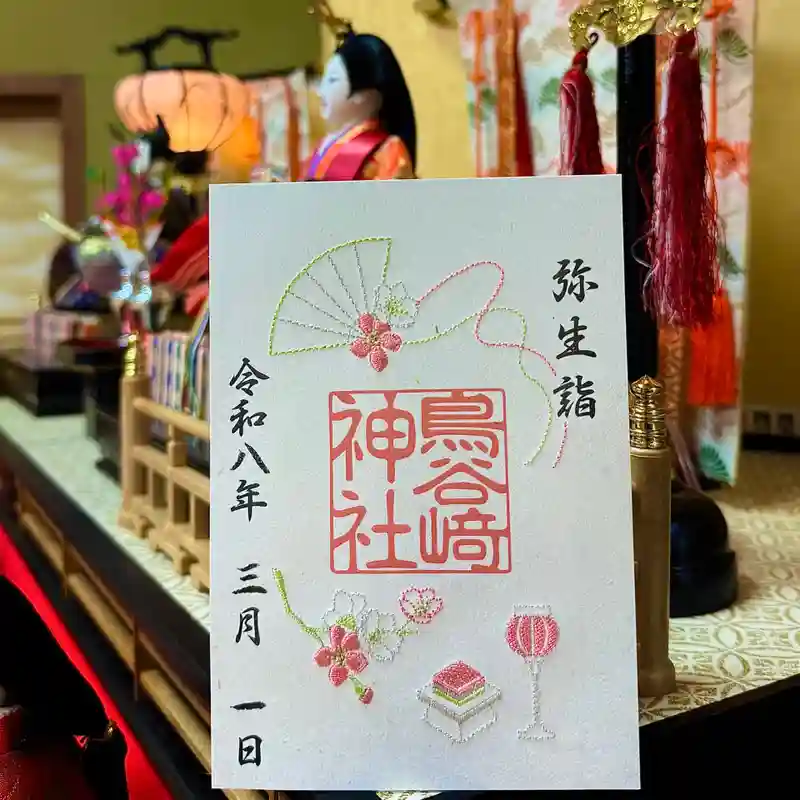 弥生詣
鳥谷崎
神社
令和八年 三月 一日